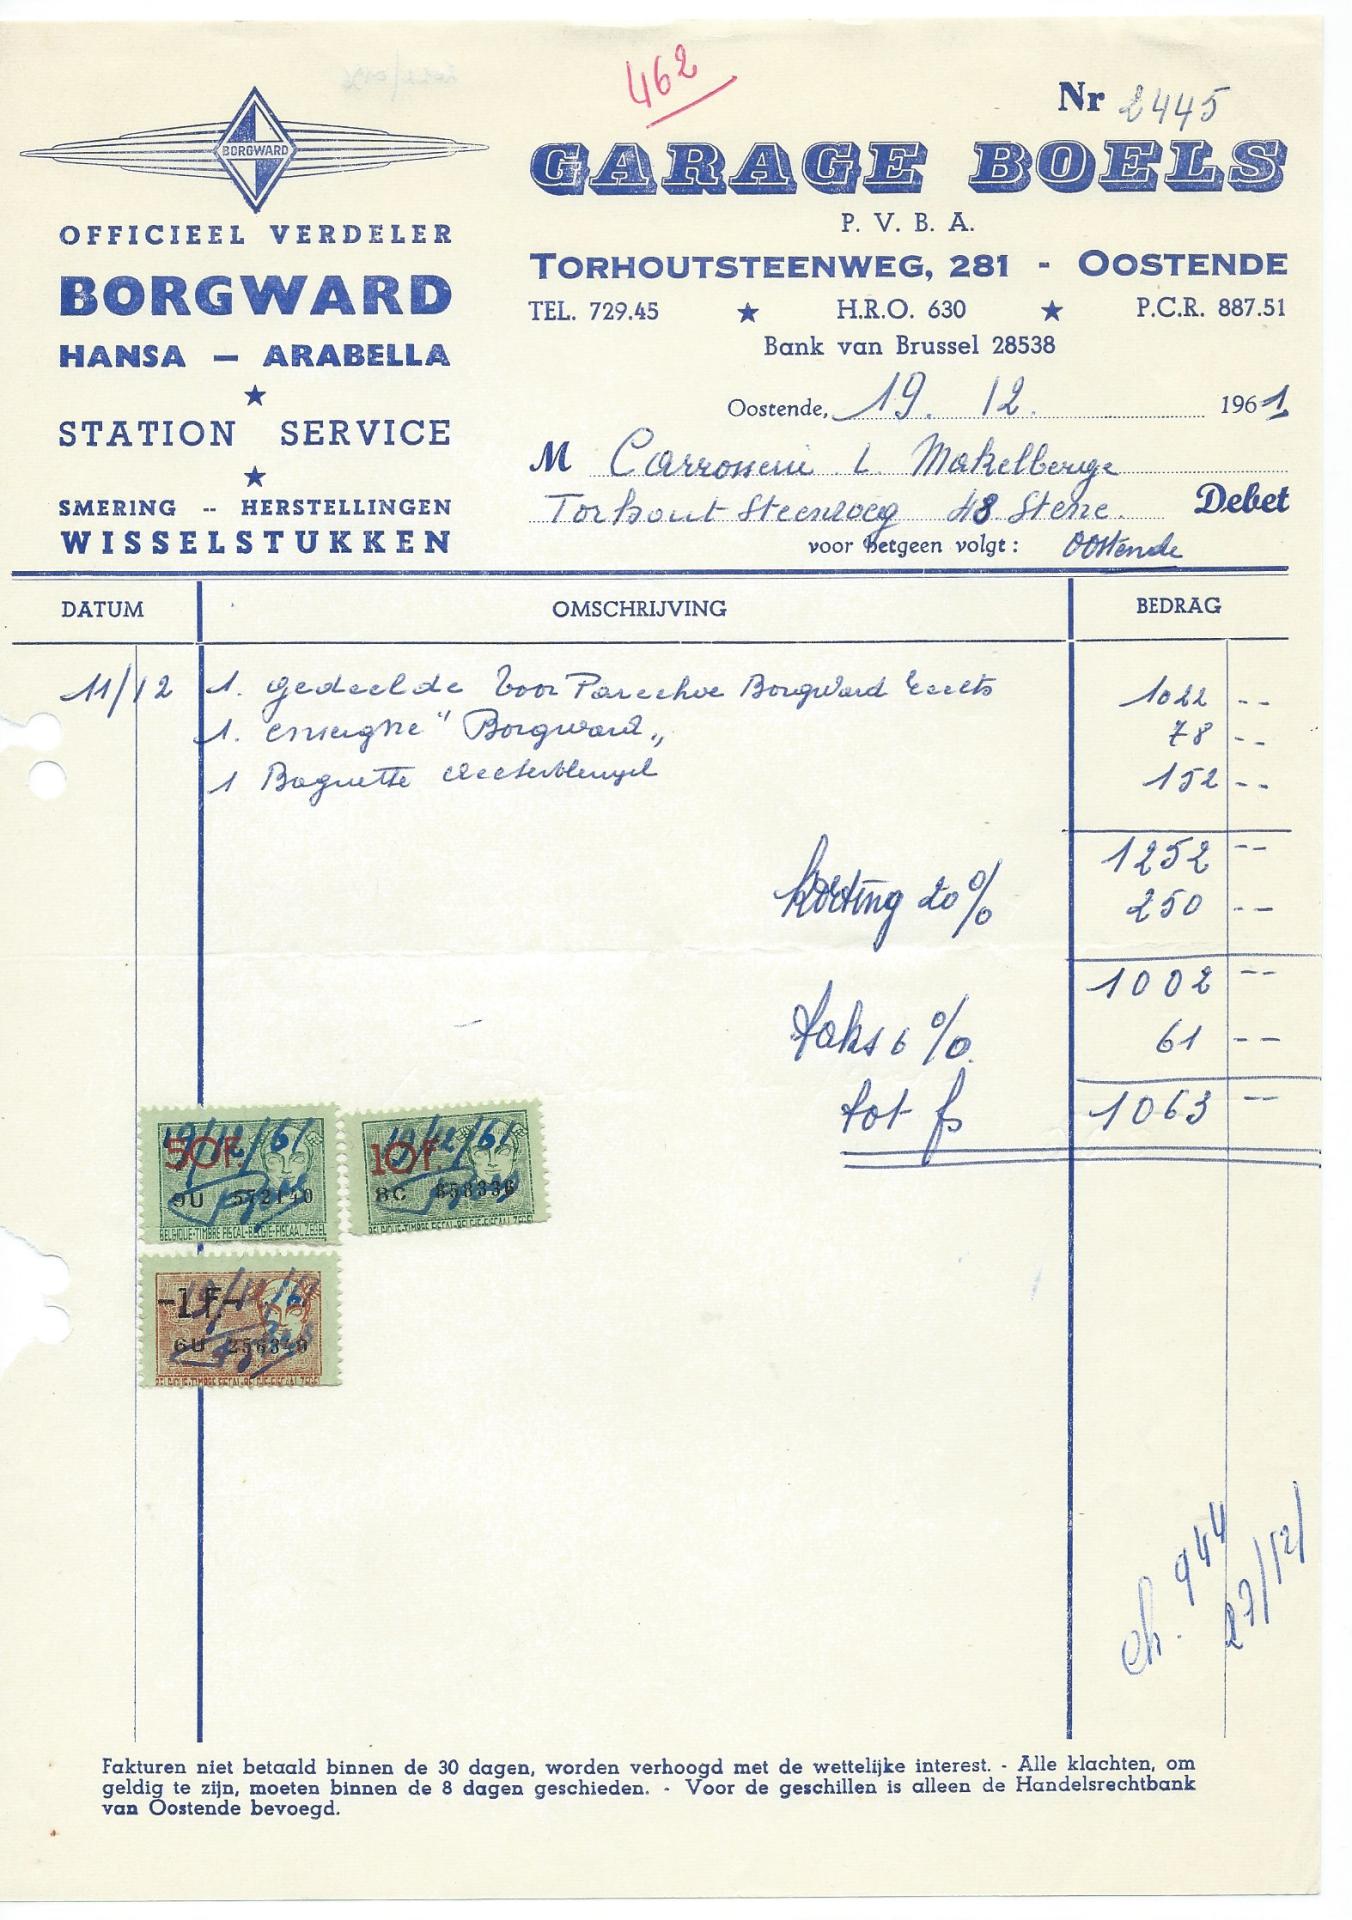 462
Nr 2445
BORGWARD
OFFICIEEL VERDELER
BORGWARD
HANSA — ARABELLA
STATION SERVICE
SMERING -- HERSTELLINGEN
WISSELSTUKKEN
GARAGE BOELS
P. V. B. A.
TORHOUTSTEENWEG, 281 - OOSTENDE
TEL. 729.45 ★ H.R.O. 630 ★ P.C.R. 887.51
Bank van Brussel 28538
Oostende, 19. 12. 1961
M Carrosserie L Makelberge
Torhout Steenweg 48 Stene. Debet
voor hetgeen volgt: Oostende
DATUM OMSCHRIJVING BEDRAG
11/12 1. gedeelde voor Parechoc Borgward 1022 --
1. enseigne "Borgward" 78 --
1 Baguette 152 --
1252 --
korting 20% 250 --
1002 --
taks 6% 61 --
tot fs 1063 --
50F. 19/12/61
9U 572140
BELGIQUE-TIMBRE FISCAL-BELGIE-FISCAAL ZEGEL
10F. 19/12/61
8C 858336
BELGIQUE-TIMBRE FISCAL-BELGIE-FISCAAL ZEGEL
-1F.- 19/12/61
6U 256340
BELGIQUE-TIMBRE FISCAL-BELGIE-FISCAAL ZEGEL
ch. 944
27/12/
Fakturen niet betaald binnen de 30 dagen, worden verhoogd met de wettelijke interest. - Alle klachten, om
geldig te zijn, moeten binnen de 8 dagen geschieden. - Voor de geschillen is alleen de Handelsrechtbank
van Oostende bevoegd.